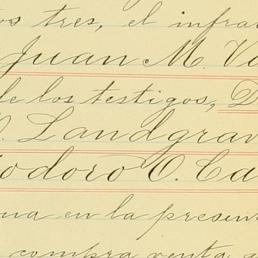 os tres, el infra
Juan M. Va
de los testigos, D
O. Landgrav
odoro O. Ca
na en la present
compra venta